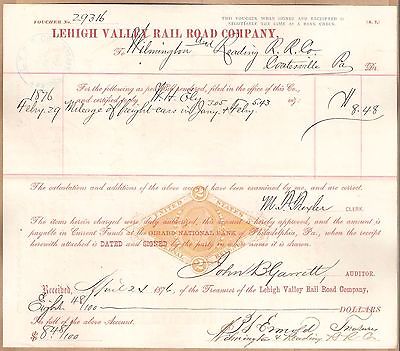 VOUCHER No. 29316
THIS VOUCHER WHEN SIGNED AND RECEIPTED IS
NEGOTIABLE THE SAME AS A BANK CHECK.
LEHIGH VALLEY RAIL ROAD COMPANY,
To Wilmington and Reading R. R. Co.
Coatesville Pa Dr.
For the following as per bills rendered, filed in the office of this Co.,
and certified by
1876
Feby. 29 Mileage of freight cars in Jany. 3.05 & Feby 5.43 $ 8.48
The calculations and additions of the above account have been examined by me, and are correct.
CLERK.
The items herein charged were duly authorized, is hereby approved, and the amount is
payable in Current Funds at the GIRARD NATIONAL BANK of Philadelphia, Pa., when the receipt
herewith attached is DATED and SIGNED by the party in whose name it is drawn.
UNITED STATES
2
John B Garrett AUDITOR.
Received, April 21 1876, of the Treasurer of the Lehigh Valley Rail Road Company,
Eight 48/100 DOLLARS
In full of the above Account.
$ 8 48/100
Treasurer
Wilmington & Reading R. R. Co.